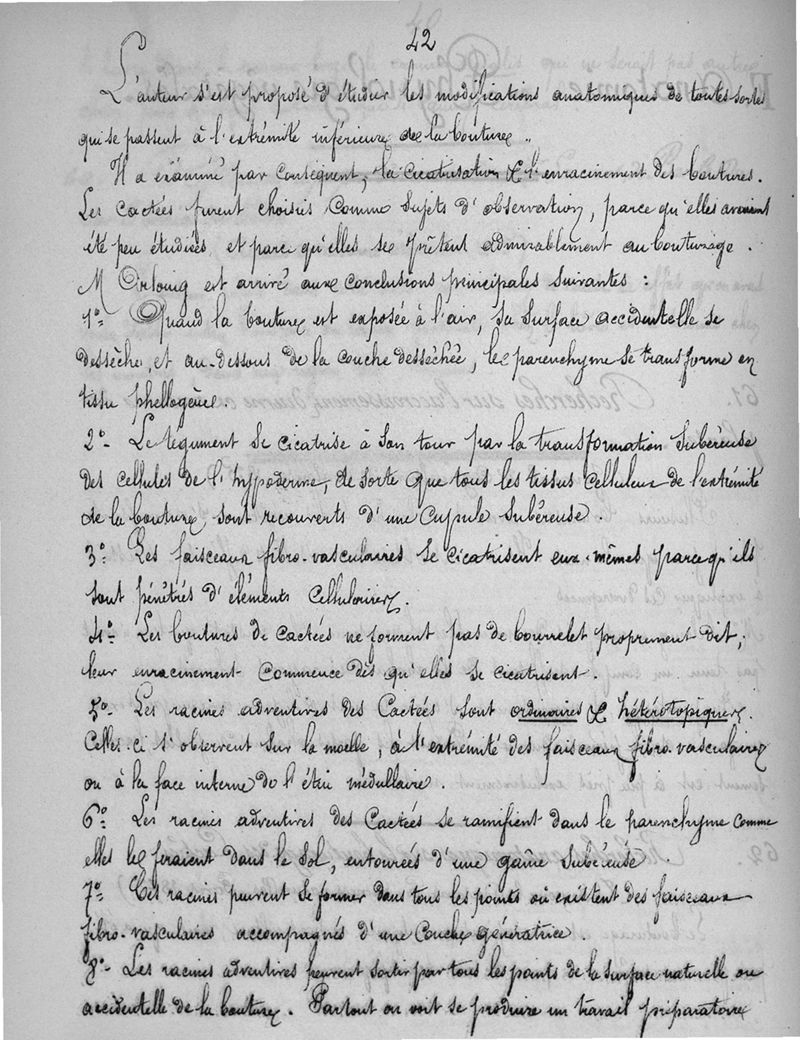 42
L'auteur s'est proposé d'étudier les modifications anatomiques de toutes sortes
qui se passent à l'extrémité inférieure de la bouture.
Il a examiné par conséquent, la cicatrisation & l'enracinement des boutures.
Les cactées furent choisies comme sujets d'observation, parce qu'elles avaient
été peu étudiées et parce qu'elles se prêtent admirablement au bouturage.
M est arrivé aux conclusions principales suivantes :
1º- Quand la bouture est exposée à l'air, sa surface accidentelle se
dessèche, et au-dessous de la couche desséchée, le parenchyme se transforme en
tissu phellogène.
2º- Le tégument se cicatrise à son tour par la transformation subéreuse
des cellules de l'hypoderme, de sorte que tous les tissus celluleux de l'extrémité
de la bouture, sont recouverts d'une cupule subéreuse.
3º- Les faisceaux fibro-vasculaires se cicatrisent eux-mêmes parce qu'ils
sont pénétrés d'éléments cellulaires.
4º- Les boutures de cactées ne forment pas de bourrelet proprement dit;
leur enracinement commence dès qu'elles se cicatrisent.
5º- Les racines adventives des Cactées sont ordinaires & hétérotopiques.
Celles-ci s'observent sur la moelle, à l'extrémité des faisceaux fibro-vasculaires
ou à la face interne de l'étui médullaire.
6º- Les racines adventives des Cactées se ramifient dans le parenchyme comme
elles le feraient dans le sol, entourées d'une gaîne subéreuse.
7º- Ces racines peuvent se former dans tous les points où existent des faisceaux
fibro-vasculaires accompagnés d'une couche génératrice.
8º- Les racines adventives peuvent sortir par tous les points de la surface naturelle ou
accidentelle de la bouture. Partout on voit se produire un travail préparatoire